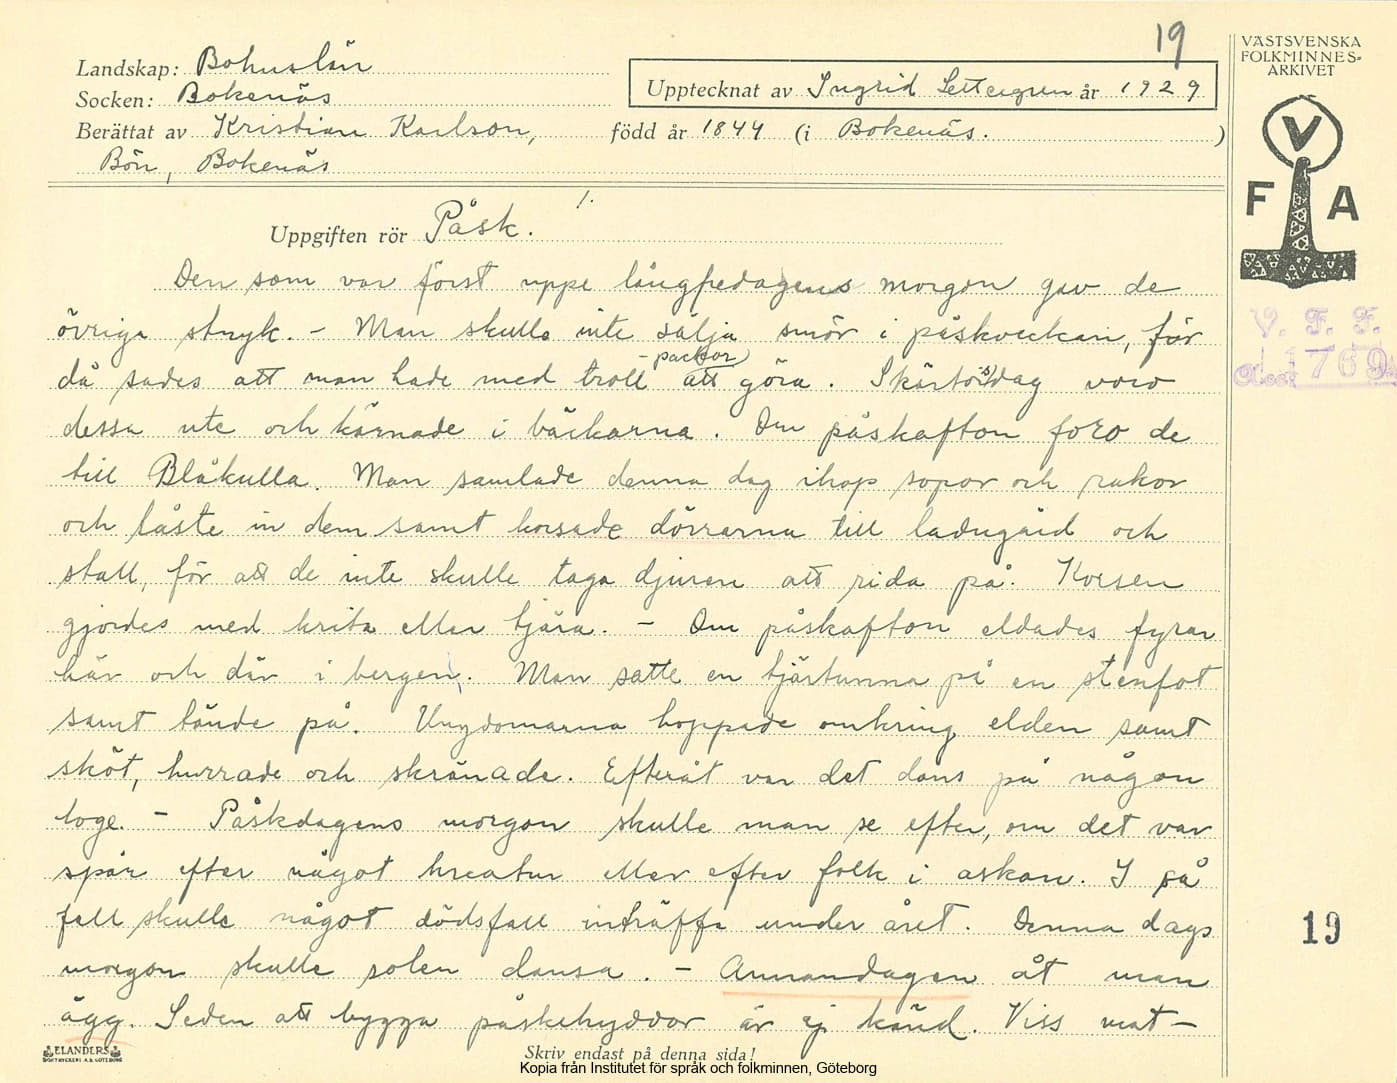 19
Landskap: Bohuslän
Socken: Bokenäs
Upptecknat av Ingrid Settergren år 1929
Berättat av Kristian Karlson, född år 1844 (i Bokenäs. )
Bön, Bokenäs
VÄSTSVENSKA
FOLKMINNES=
ARKIVET
V
F A
1.
Uppgiften rör Påsk.
Den som var först uppe långfredagens morgon gav de
övriga stryk. - Man skulle inte sälja smör i påskveckan, för
då sades att man hade med troll-packor att göra. Skärtorsdag voro
dessa ute och kärnade i bäckarna. Om påskafton foro de
till Blåkulla. Man samlade denna dag ihop sopor och rakor
och låste in dem samt korsade dörrarna till ladugård och
stall, för att de inte skulle taga djuren att rida på. Korsen
gjordes med krita eller tjära. - Om påskafton eldades fyrar
här och där i bergen. Man satte en tjärtunna på en stenfot
samt tände på. Ungdomarna hoppade omkring elden samt
sköt, hurrade och skränade. Efteråt var det dans på någon
loge. - Påskdagens morgon skulle man se efter, om det var
spår efter något kreatur eller efter folk i askan. I så
fall skulle något dödsfall inträffa under året. Denna dags
morgon skulle solen dansa. - Annandagen åt man
ägg. Seden att bygga påskehyddor är ej känd. Viss mat-
V. F. F.
Acc. 1769
19
ELANDERS
BOKTRYCKERI A.B. GÖTEBORG
Skriv endast på denna sida!
Kopia från Institutet för språk och folkminnen, Göteborg